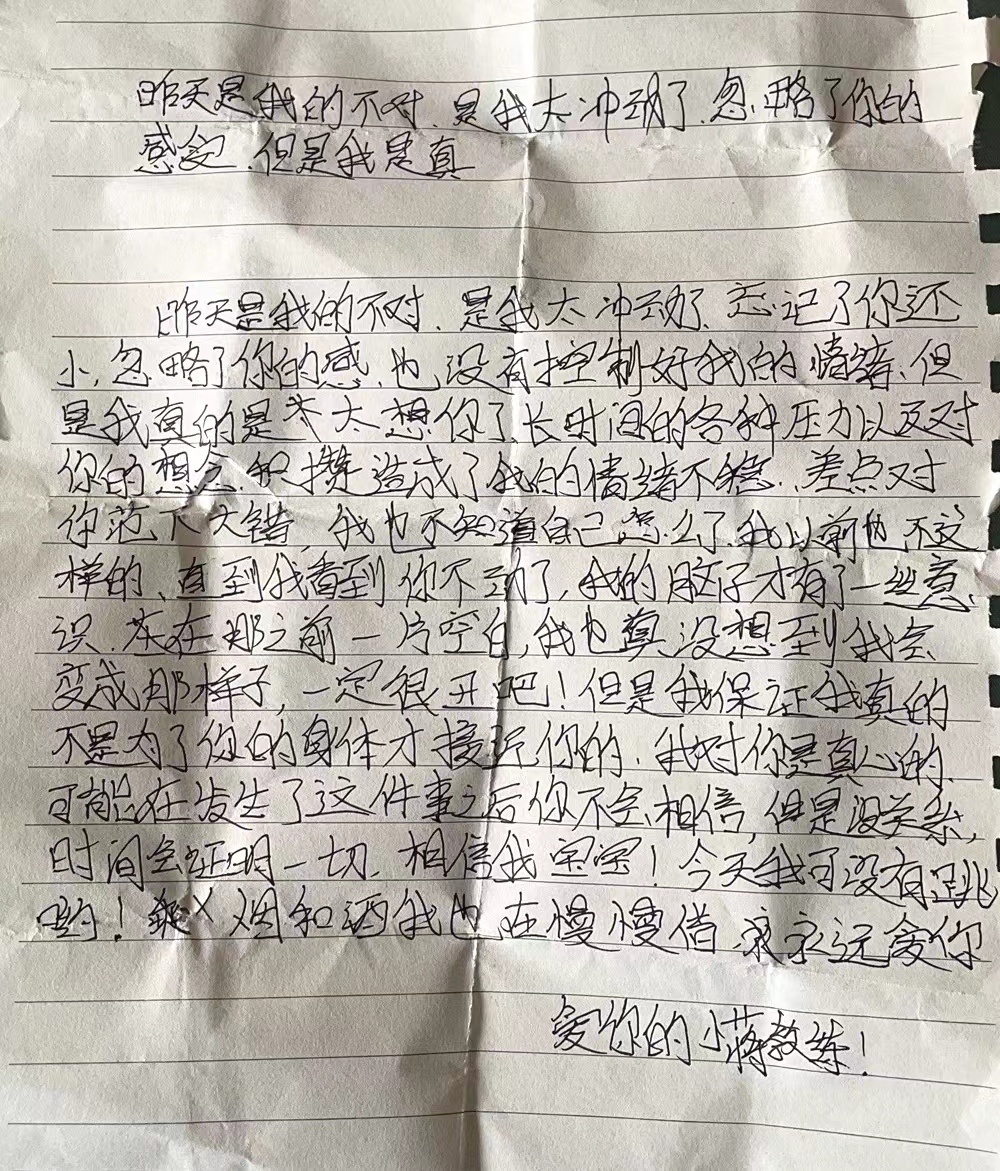 昨天是我的不对、是我太冲动了、忽略了你的
感受、但是我是真
昨天是我的不对、是我太冲动了、忘记了你还
小、忽略了你的感、也没有控制好我的情绪、但
是我真的是太想你了长时间的各种压力以及对
你的想念积攒造成了我的情绪不稳、差点对
你范下大错、我也不知道自己怎么了、我以前也不这
样的、直到我看到你不动了,我的脑子才有了一丝意
识、在那之前一片空白,我也真没想到我会
变成那样子,一定很丑吧!但是我保证我真的
不是为了你的身体才接近你的、我对你是真心的、
可能在发生了这件事之后你不会相信,但是没关系,
时间会证明一切、相信我宝宝!今天我可没有跳
哟!烟和酒我也在慢慢借、永远爱你
爱你的小蒋教练!